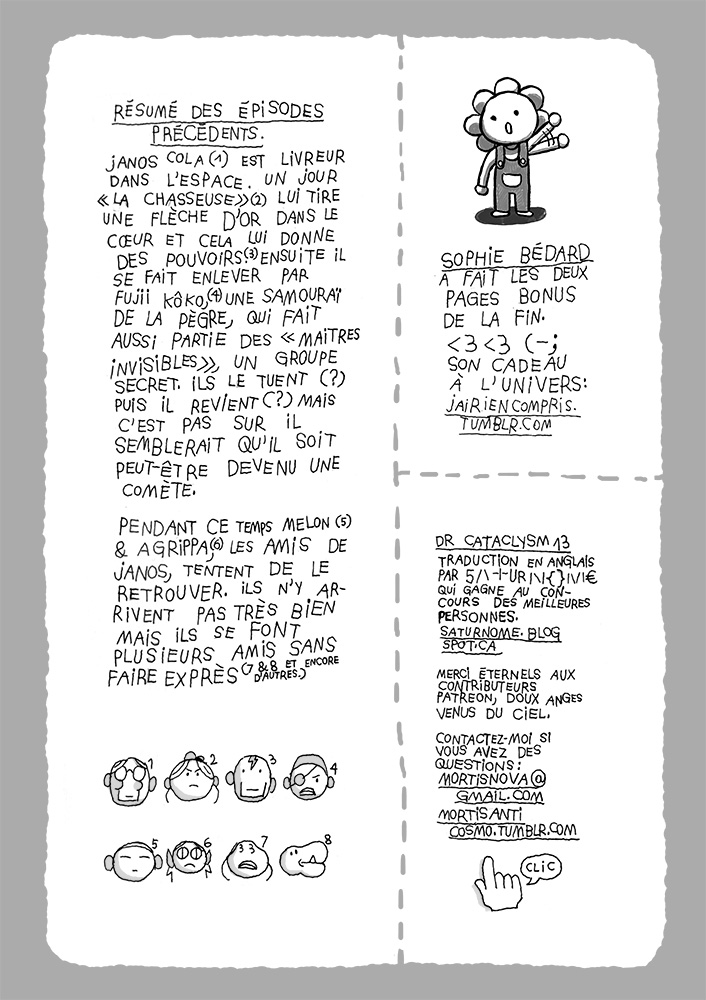 RÉSUMÉ DES ÉPISODES
PRÉCÉDENTS.
JANOS COLA(1) EST LIVREUR
DANS L'ESPACE. UN JOUR
«LA CHASSEUSE»(2) LUI TIRE
UNE FLÈCHE D'OR DANS LE
CŒUR ET CELA LUI DONNE
DES POUVOIRS(3) ENSUITE IL
SE FAIT ENLEVER PAR
FUJII KÔKO,(4) UNE SAMOURAÏ
DE LA PÈGRE, QUI FAIT
AUSSI PARTIE DES «MAITRES
INVISIBLES», UN GROUPE
SECRET. ILS LE TUENT (?)
PUIS IL REVIENT(?) MAIS
C'EST PAS SUR IL
SEMBLERAIT QU'IL SOIT
PEUT-ÊTRE DEVENU UNE
COMÈTE.
PENDANT CE TEMPS MELON(5)
& AGRIPPA,(6) LES AMIS DE
JANOS, TENTENT DE LE
RETROUVER. ILS N'Y AR-
RIVENT PAS TRÈS BIEN
MAIS ILS SE FONT
PLUSIEURS AMIS SANS
FAIRE EXPRÈS(7 & 8 ET ENCORE
D'AUTRES.)
1 2 3 4
5 6 7 8
SOPHIE BÉDARD
A FAIT LES DEUX
PAGES BONUS
DE LA FIN.
<3 <3 (-;
SON CADEAU
À L'UNIVERS:
JAIRIENCOMPRIS.
TUMBLR.COM
DR CATACLYSM 13
TRADUCTION EN ANGLAIS
PAR 5/\-|-UR|\|{}|\/|€
QUI GAGNE AU CON-
COURS DES MEILLEURES
PERSONNES.
SATURNOME.BLOG
SPOT.CA
MERCI ÉTERNELS AUX
CONTRIBUTEURS
PATREON, DOUX ANGES
VENUS DU CIEL.
CONTACTEZ-MOI SI
VOUS AVEZ DES
QUESTIONS:
MORTISNOVA@
GMAIL.COM
MORTISANTI
COSMO.TUMBLR.COM
CLIC